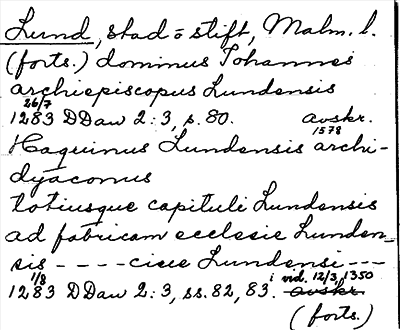 Lund, stad o stift, Malm. l.
(forts.) dominus Johannes
archiepiscopus Lundensis
26/7
1283 DDan 2:3, s. 80. avskr. 1578
Haquinus Lundensis archi-
dyaconus
totiusque capituli Lundensis
ad fabricam ecclesie Lunden-
sis - - - - ciue Lundensi - - -
1/8
1283 DDan 2:3, ss. 82, 83. i vid. 12/3, 1350 avskr.
(forts.)